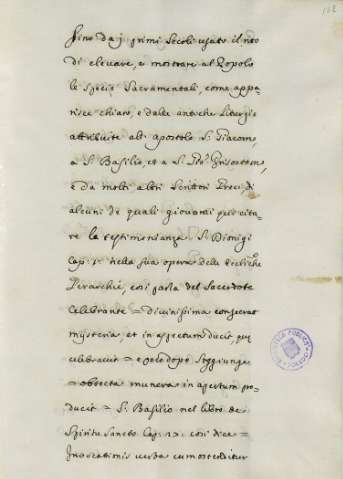 162
Sino da i primi Secoli usato il rito
di elevare, e mostrare al Popolo
le Specie Sacramentali, come appa-
risce chiaro, e dalle antiche Liturgie
attribuite all' Apostolo S. Giacomo,
a S. Basilio, et a S. Gio: Grisostomo,
e da molti altri Scrittori Greci, di
alcuni de quali giovami qui cita-
re la testimonianza. S. Dionigi
Cap. 3 nella sua opera delle Eccles:che
Ierarchie, così parla del Sacerdote
Celebrante = divinissima consecrat
mysteria, et in aspectum ducit, que
celebravit = e poco dopo Soggiunge
= obtecta munera in apertum pro-
ducit = S. Basilio nel libro de
Spiritu Sancto Cap. 27. così dice =
Invocationis verba cum ostenditur